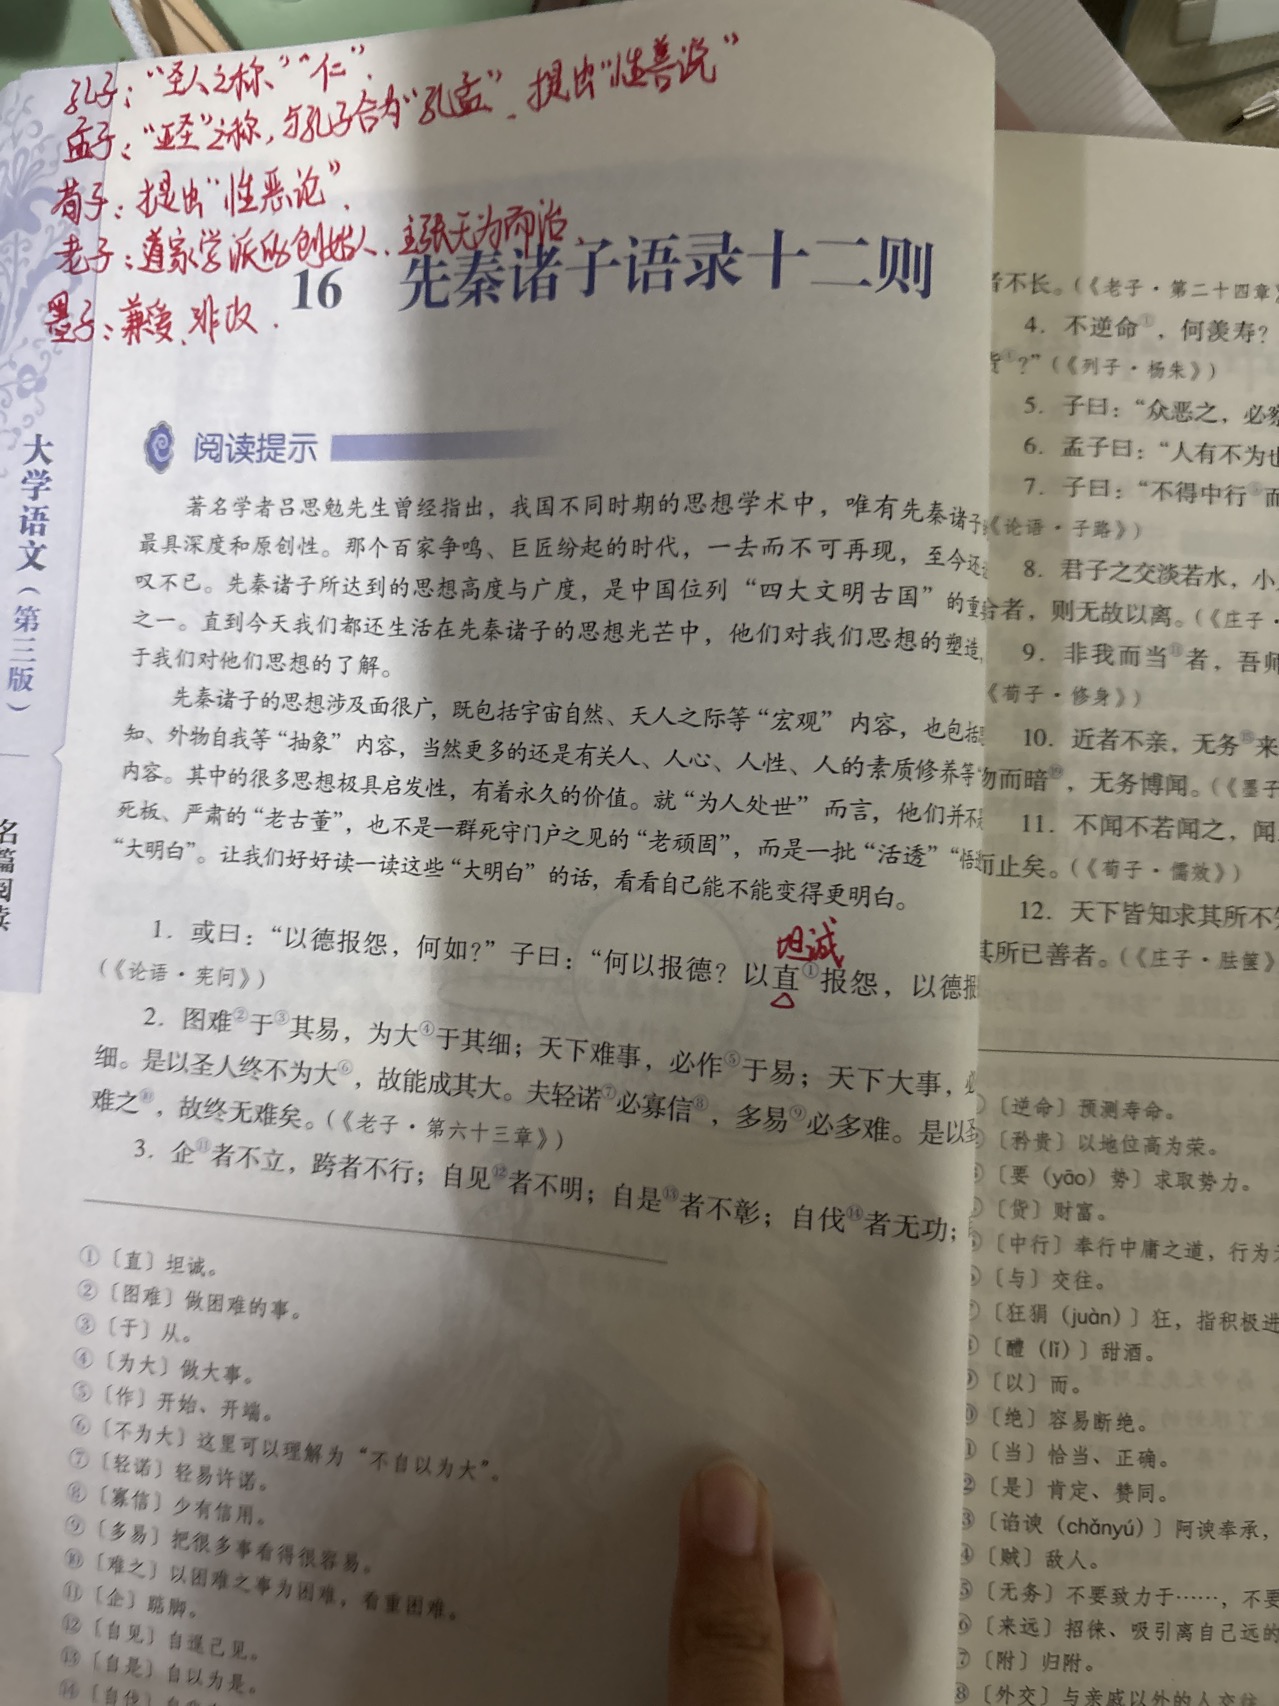 孔子：“圣人之称”“仁”.
孟子：“亚圣”之称，与孔子合为“孔孟”. 提出“性善说”
荀子：提出“性恶论”.
老子：道家学派的创始人. 主张无为而治
墨子：兼爱、非攻.
16 先秦诸子语录十二则
大学语文（第三版）
名篇阅读
阅读提示
著名学者吕思勉先生曾经指出，我国不同时期的思想学术中，唯有先秦诸子
最具深度和原创性。那个百家争鸣、巨匠纷起的时代，一去而不可再现，至今还
叹不已。先秦诸子所达到的思想高度与广度，是中国位列“四大文明古国”的重
之一。直到今天我们都还生活在先秦诸子的思想光芒中，他们对我们思想的塑造，
于我们对他们思想的了解。
先秦诸子的思想涉及面很广，既包括宇宙自然、天人之际等“宏观”内容，也包括
知、外物自我等“抽象”内容，当然更多的还是有关人、人心、人性、人的素质修养等
内容。其中的很多思想极具启发性，有着永久的价值。就“为人处世”而言，他们并不
死板、严肃的“老古董”，也不是一群死守门户之见的“老顽固”，而是一批“活透”“悟
“大明白”。让我们好好读一读这些“大明白”的话，看看自己能不能变得更明白。
坦诚
1. 或曰：“以德报怨，何如？”子曰：“何以报德？以直①报怨，以德报
（《论语·宪问》）
2. 图难②于③其易，为大④于其细；天下难事，必作⑤于易；天下大事，必
细。是以圣人终不为大⑥，故能成其大。夫轻诺⑦必寡信⑧，多易⑨必多难。是以圣
难之⑩，故终无难矣。（《老子·第六十三章》）
3. 企⑪者不立，跨者不行；自见⑫者不明；自是⑬者不彰；自伐⑭者无功；
①〔直〕坦诚。
②〔图难〕做困难的事。
③〔于〕从。
④〔为大〕做大事。
⑤〔作〕开始、开端。
⑥〔不为大〕这里可以理解为“不自以为大”。
⑦〔轻诺〕轻易许诺。
⑧〔寡信〕少有信用。
⑨〔多易〕把很多事看得很容易。
⑩〔难之〕以困难之事为困难，看重困难。
⑪〔企〕踮脚。
⑫〔自见〕自逞己见。
⑬〔自是〕自以为是。
⑭〔自伐〕
者不长。（《老子·第二十四章》
4. 不逆命①，何羡寿？
货④？”（《列子·杨朱》）
5. 子曰：“众恶之，必察
6. 孟子曰：“人有不为也
7. 子曰：“不得中行⑤而
《论语·子路》）
8. 君子之交淡若水，小
合者，则无故以离。（《庄子·
9. 非我而当⑪者，吾师
《荀子·修身》）
10. 近者不亲，无务⑮来
物而暗⑲，无务博闻。（《墨子
11. 不闻不若闻之，闻
而止矣。（《荀子·儒效》）
12. 天下皆知求其所不知
其所已善者。（《庄子·胠箧》）
〔逆命〕预测寿命。
〔矜贵〕以地位高为荣。
〔要（yāo）势〕求取势力。
〔货〕财富。
〔中行〕奉行中庸之道，行为
〔与〕交往。
〔狂狷（juàn）〕狂，指积极进
〔醴（lǐ）〕甜酒。
〔以〕而。
〔绝〕容易断绝。
〔当〕恰当、正确。
〔是〕肯定、赞同。
〔谄谀（chǎnyú）〕阿谀奉承，
〔贼〕敌人。
〔无务〕不要致力于……，不要
〔来远〕招徕、吸引离自己远的
〔附〕归附。
〔外交〕与亲戚以外的人交往